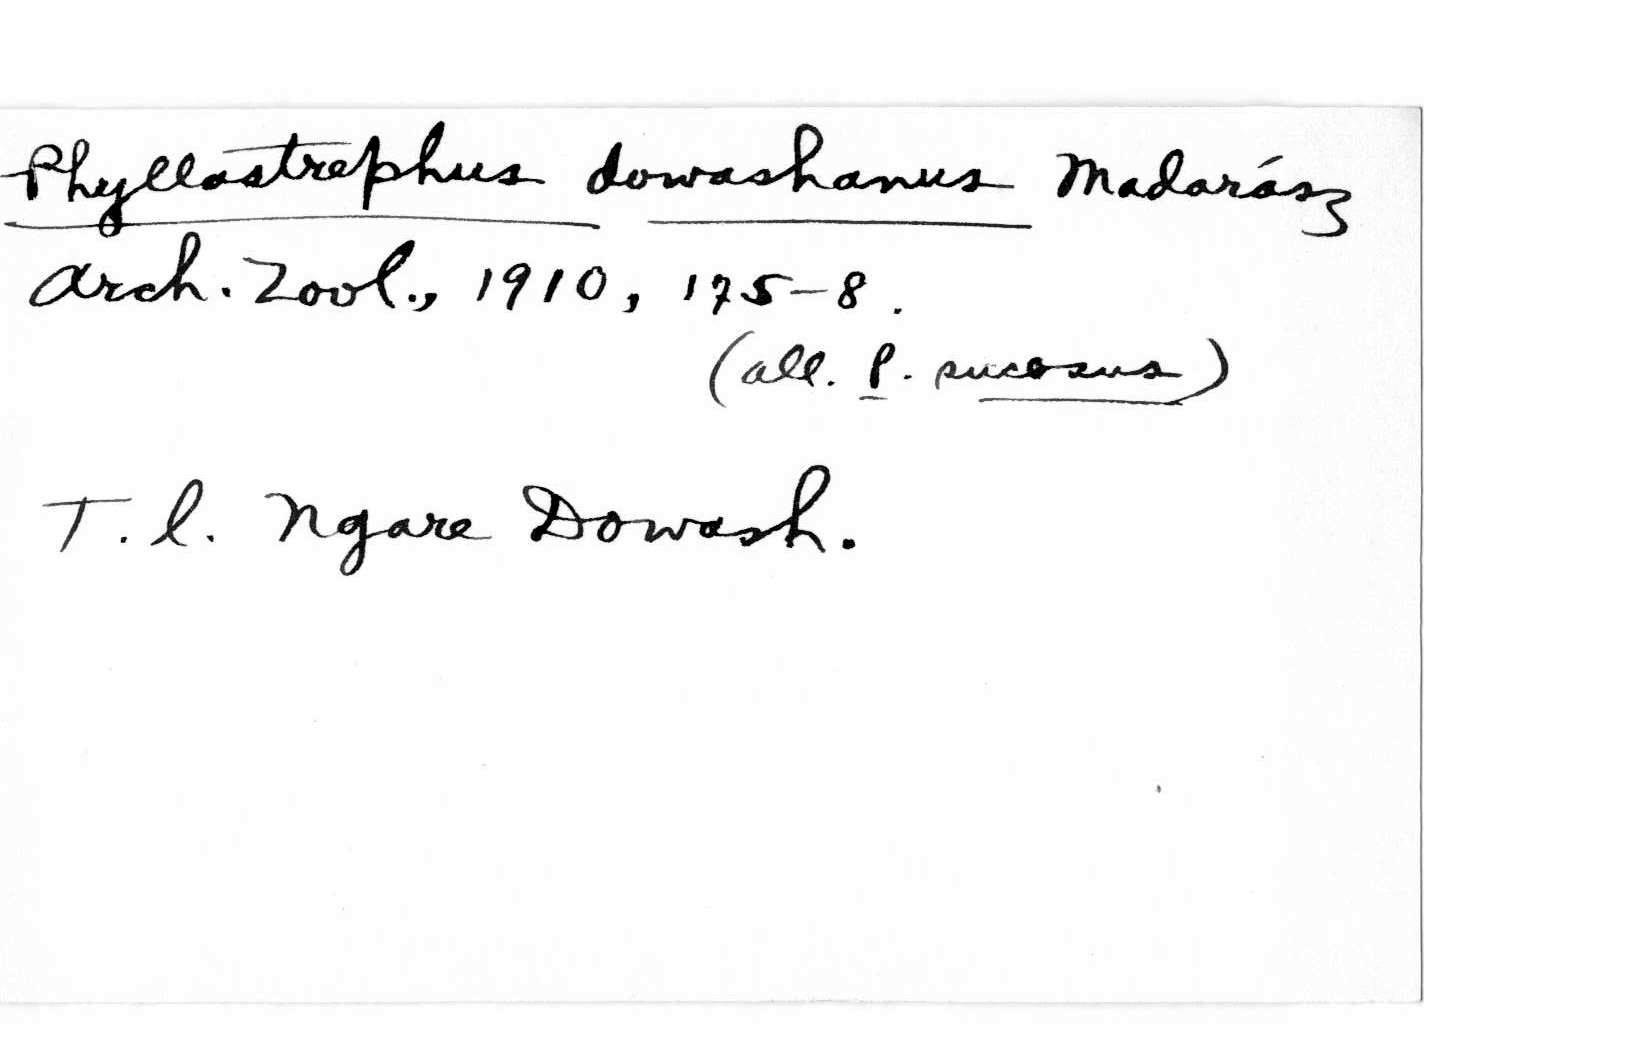 Phyllostrephus dowashanus Madarász
Arch. Zool., 1910, 175-8.
(all. P. sucosus)
T. l. Ngare Dowash.